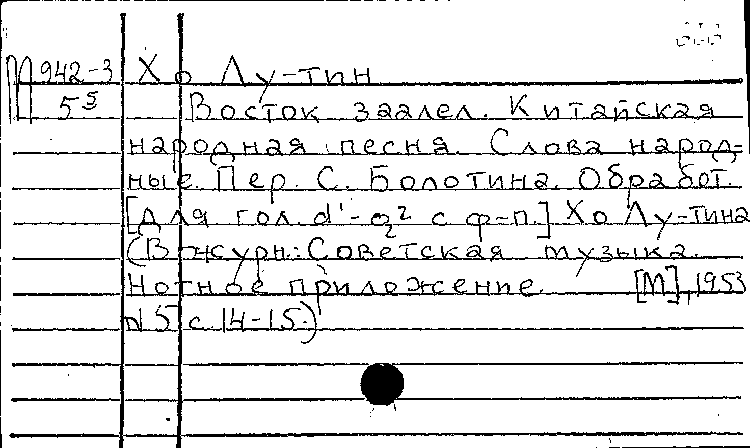 П942-3 Хо Лу-тин
5⁵ Восток заалел. Китайская
народная песня. Слова народ-
ные. Пер. С. Болотина. Обработ.
[для гол. d'-g² с ф-п.] Хо Лу-тина
(В журн.: Советская музыка.
Нотное приложение. [М], 1953
N5 с. 14-15.)